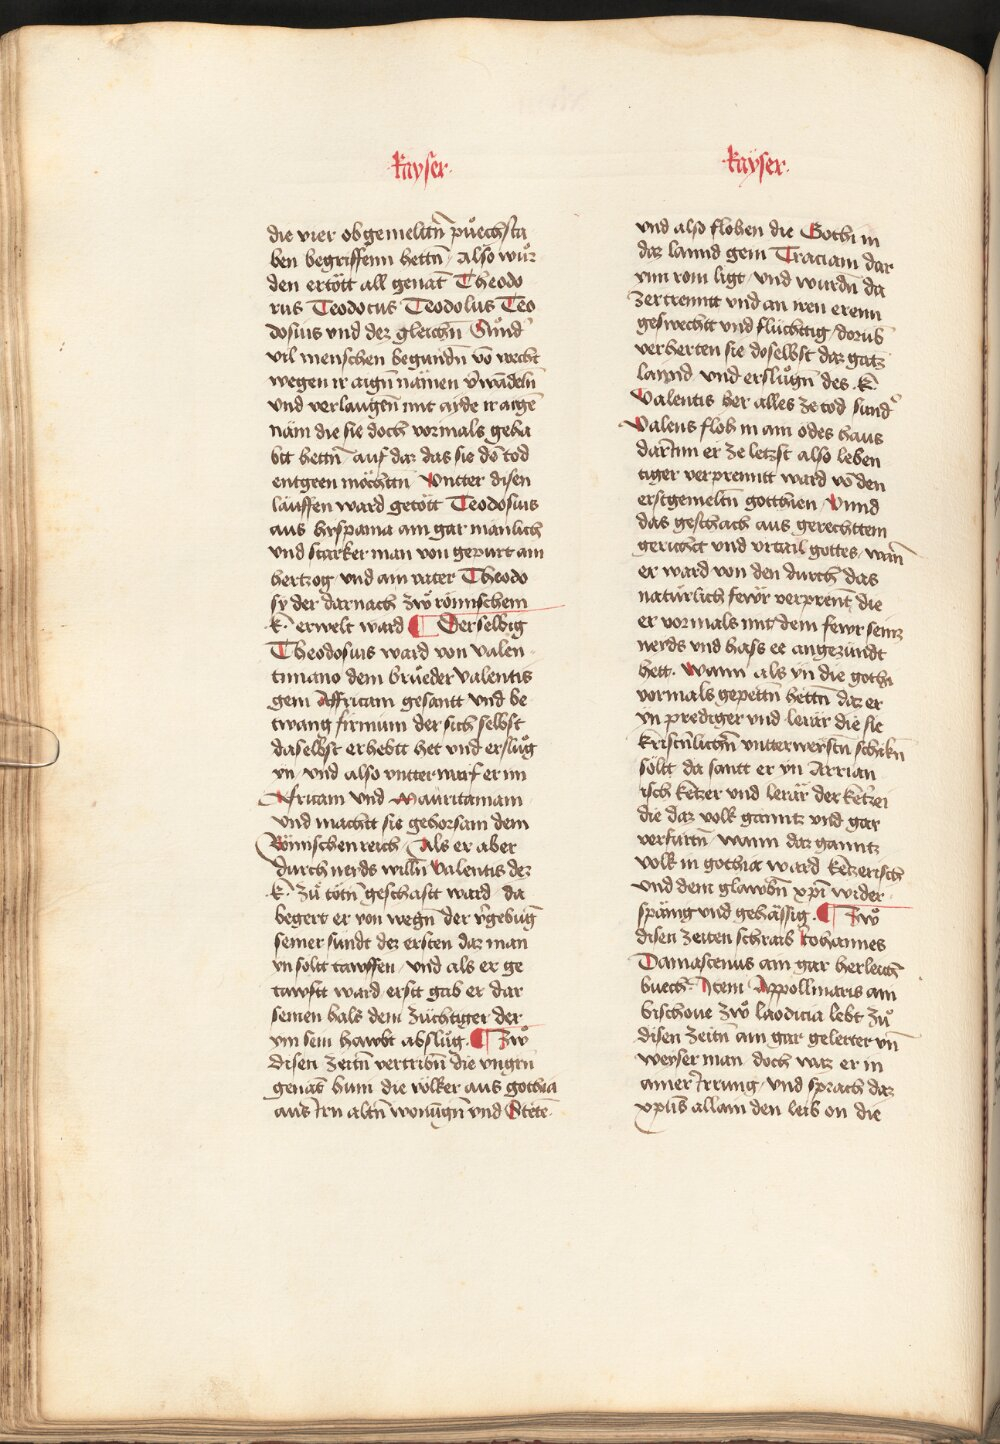 kayser.
die vier obgemeltn̄ puͦechsta
ben begriffenn hettn̄ / Also wuͦr
den ertoͤtt all genāt Theodo
rus Teodotus Teodolus Teo
dosius vnd dez gleichn̄ Sūnd
vil menschen begundn̄ vō wecht
wegen ir aign̄ nāmen v̄wādeln̄
vnd verlaugen̄ mit aide ir aigē
nām die sie doch vormals geha
btt hettn̄ auf daz das sie dē tod
entgeen moͤchttn̄ Vntter disen
lauffen ward getoͤtt Teodosius
aus hyspania ain gar mānlich
vnd starker man von gepurt ain
hertzog vnd ain vater Theodo
sy der darnach zwͦ roͤmischem
k. erwelt ward ¶ Derselbig
Theodosius ward von valen
tiniano dem bruͤeder valentis
gem Affricam gesantt vnd be
twang firmum der sich selbst
daselbst erhebtt het vnd ersluͦg
yn / vnd also vntterwarf er im
Africam vnd Mauritaniam
vnd machtt sie gehorsam dem
Roͤmischen reich / Als er aber
durch neyds willn̄ valentis dez
k. zuͦ toͤtn̄ geschafft ward / da
begert er von wegn̄ der v̄gebūg
seiner sundt dez ersten daz man
yn soltt tawffen / vnd als er ge
tawft ward erst gab er dar
seinen hals dem zuͤchtiger der
ym sein hawbt abslueg. ¶ Zwͦ
disen zeitn̄ vertribn̄ die vngrn̄
genāt hūni die voͤlker aus gothia
aus Irn altn̄ wonūgn̄ vnd Stetē
kayser.
vnd also flohen die Gothi in
daz lannd gem Traciam daz
vmb rom ligt / vnd wurdn̄ da
zertrennt vnd an iren erenn
geswecht vnd fluͤchttig / dorub
verherten sie doselbst daz gātz
lannd vnd ersluͦgn̄ des .k.
Valentis her alles ze tod sund
Valens floh in ain oͤdes haus
darInn er ze letzst also leben
tiger verprennt ward vō den
erstgemeltn̄ gotthien / Vnnd
das geschach aus gerechttem
gericht vnd vrtail gottes / wān
er ward von den durch das
natuͤrlich fewr verprent die
er vormals mit dem fewr seinz
neyds vnd hass ee angezundt
hett. Wann als yn die gothi
vormals gepettn̄ hettn̄ daz er
yn prediger vnd lerār die sie
kristn̄lichn̄ vntterweystn̄ schikn̄
soͤltt da santt er yn Arrian
isch ketzer vnd lerār der ketzei
die daz volk ganntz vnd gar
verfuͤrtn̄ / wann daz ganntz
volk in gothia ward ketzerisch
vnd dem glawbn̄ xp̄i wider
spānig vnd gehāssig. ¶ Zwͦ
disen zeiten schraib Iohannes
Damascenus ain gar herleich
buech. Item Appollinaris ain
bischoue zwͦ laodicia lebt zuͦ
disen zeitn̄ ain gar gelerter vn̄
weyser man / doch waz er in
ainer Irrung / vnd sprach daz
xp̄us allain den leib on die